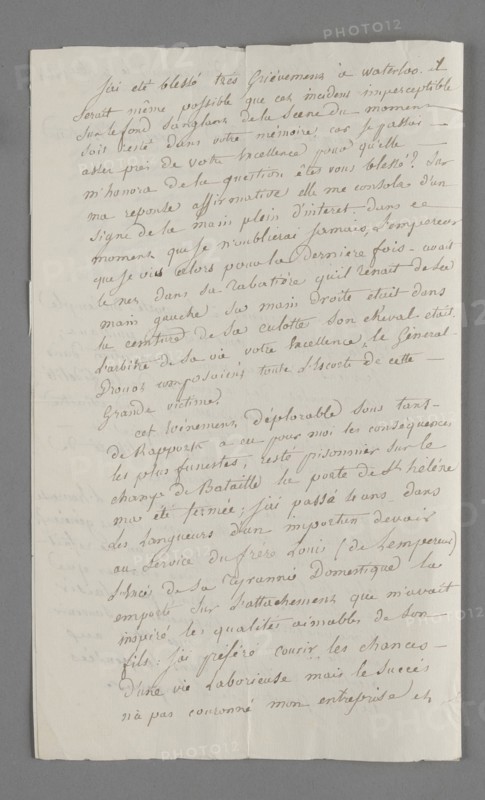 J'ai eté blessé tres Grièvement à waterloo. il
serait même possible que cet incident imperceptible
sur le fond Sanglant de la Scene du moment
soit resté dans votre mémoire, car je passai
assez près de votre Excellence pour qu'elle
m'honora de la question êtes vous blessé? Sur
ma reponse affirmative elle me consola d'un
signe de la main plein d'interet dans ce
moment que je n'oublierai jamais, L'empereur
que je vis alors pour la derniere fois avait
le nez dans sa tabatière qu'il tenait de la
main gauche sa main droite etait dans
la ceinture de sa culotte son cheval etait
l'arbitre de sa vie votre Excellence, le Général
Drouot composaient toute l'Escorte de cette
Grande victime.
cet Evènement déplorable sous tant
de Rapports a eu pour moi les conséquences
les plus funestes; resté prisonnier sur le
champ de Bataille la porte de St hélène
m'a été fermée; j'ai passé ans dans
les Langueurs d'un importun devoir
au Service du frère Louis (de L'empereur)
L'Excès de sa Tyrannie Domestique l'a
emporté sur l'attachement que m'avait
inspiré les qualités aimables de son
fils; j'ai préféré courir les chances
d'une vie Laborieuse mais le succès
n'a pas couronné mon entreprise et
PHOTO12